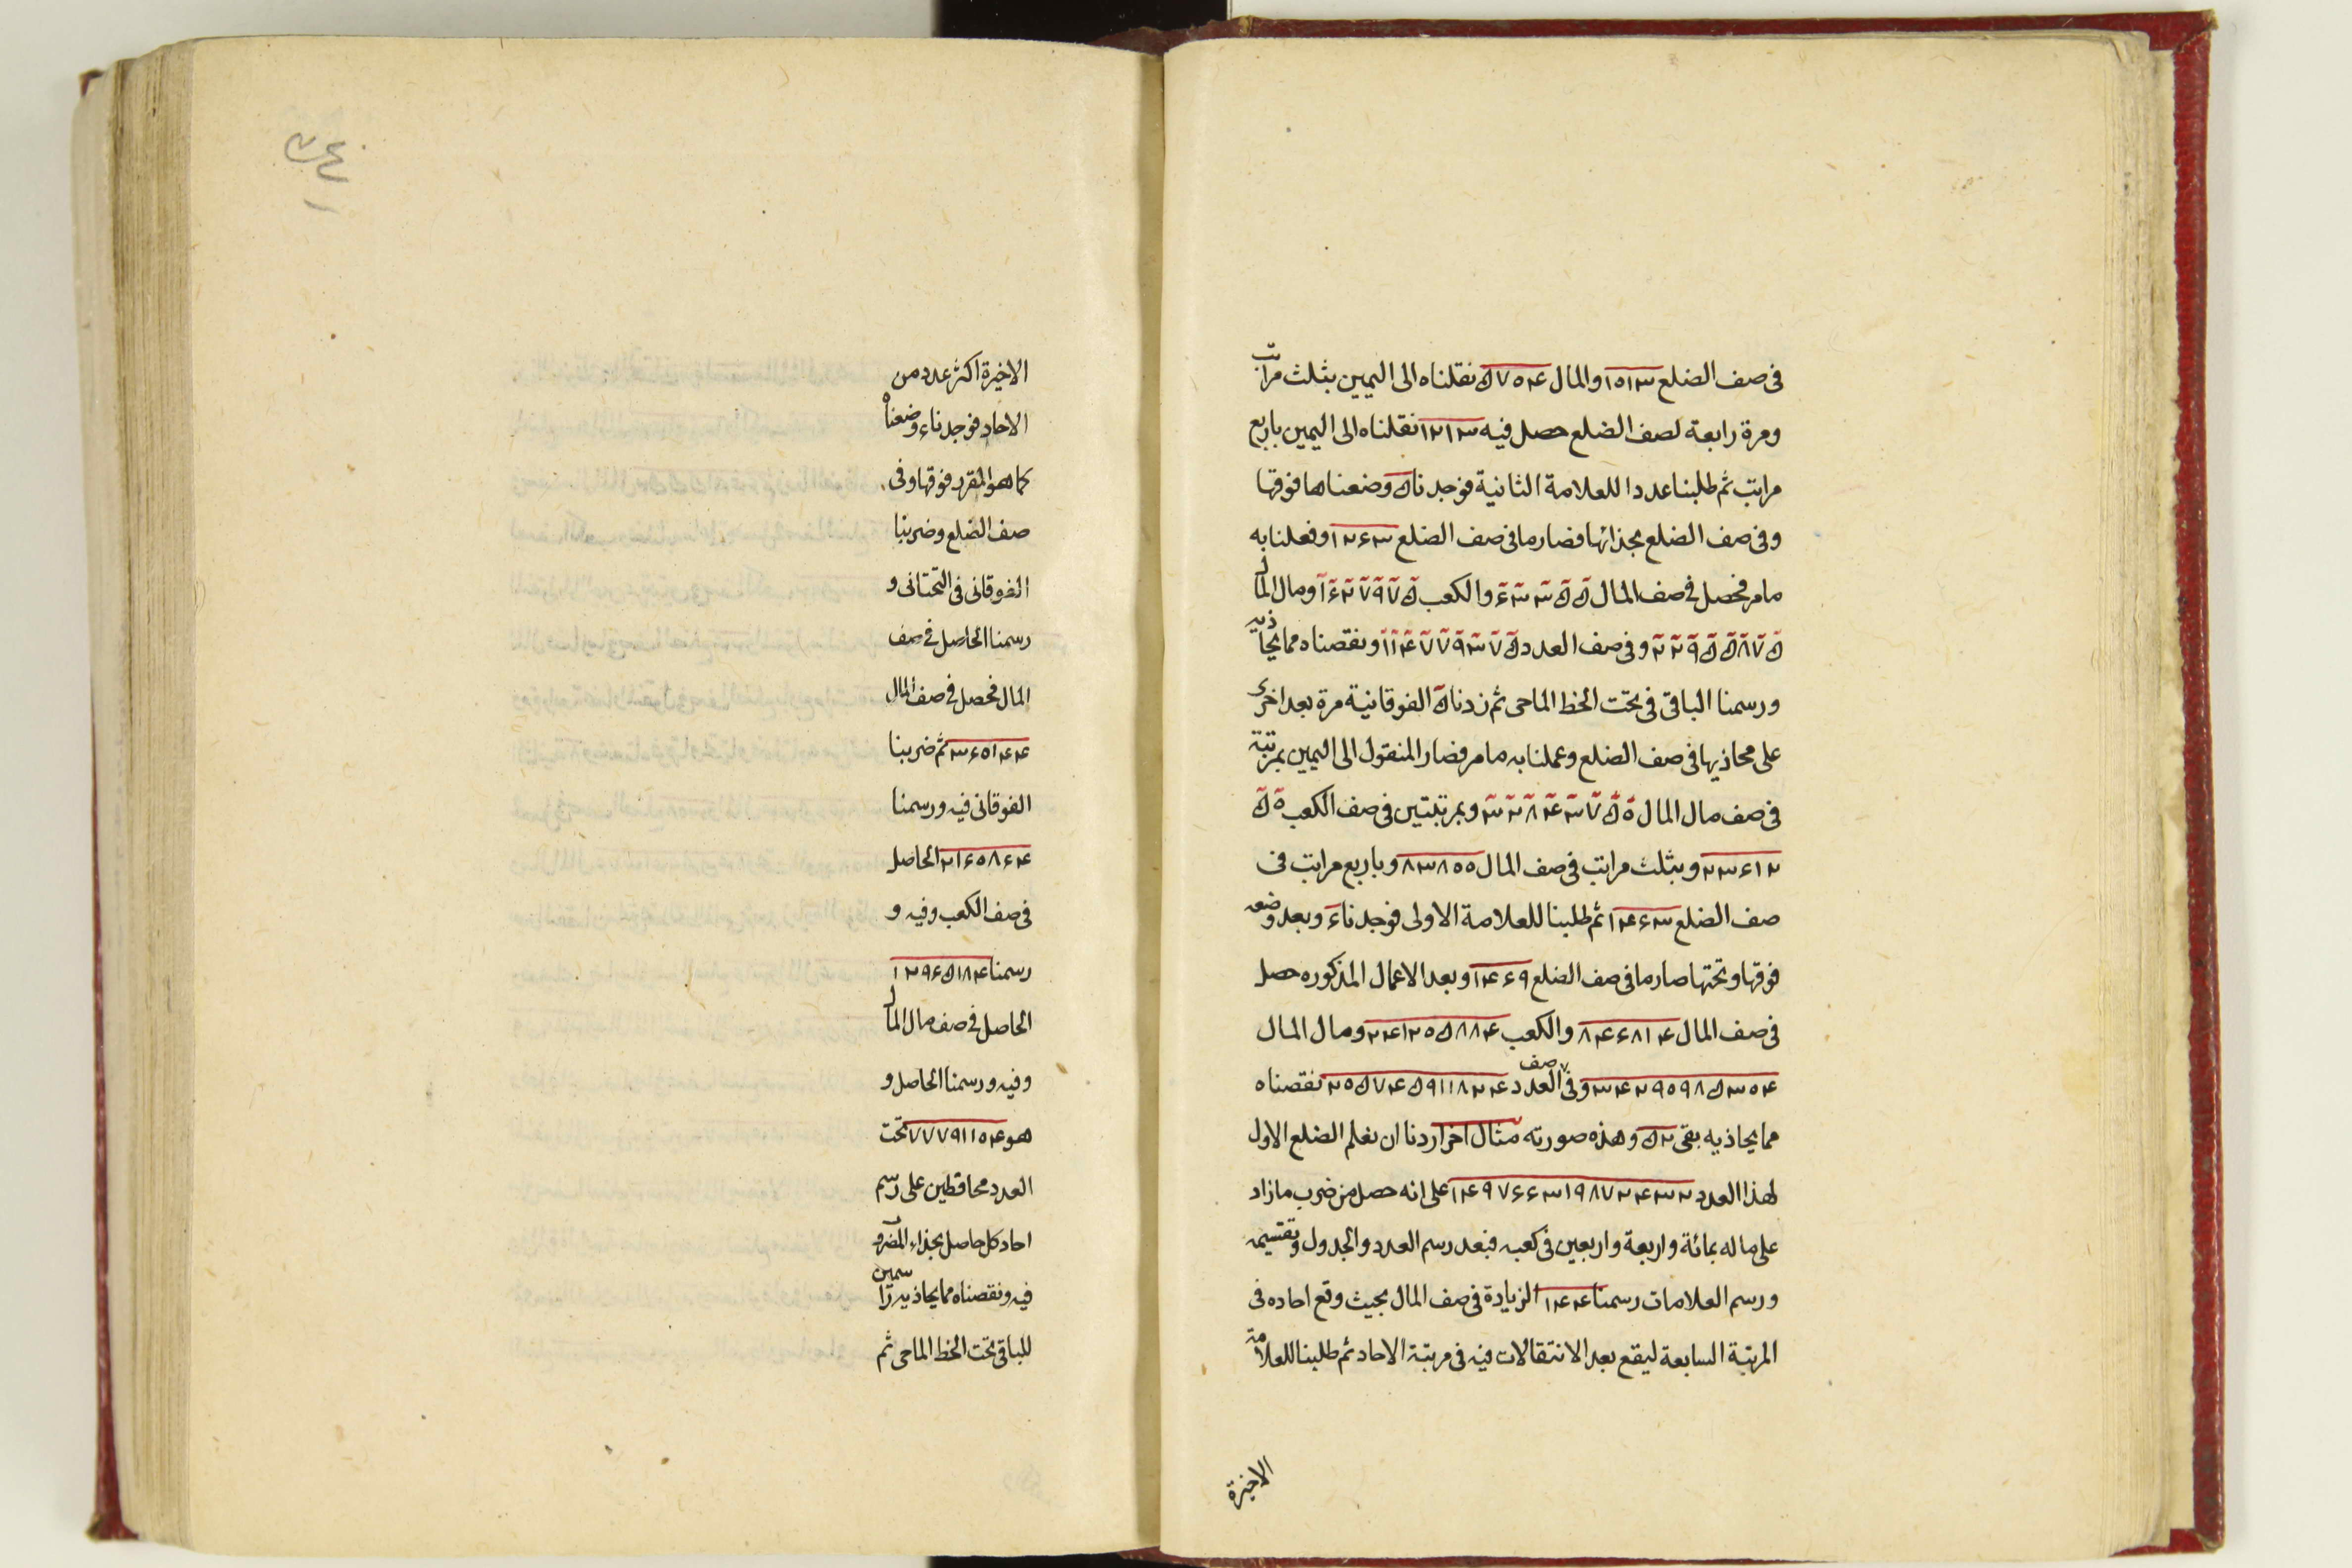 فى صف الضلع ١٥١٣ والمال ٥٧٥٤ نقلناه الى اليمين بثلث مراتب
ومرة رابعة لصف الضلع حصل فيه ١٢١٣ نقلناه الى اليمين باربع
مراتب ثم طلبنا عددا للعلامة الثانية فوجدنا ٥ وضعناها فوقها
وفى صف الضلع بحذائها فصار ما فى صف الضلع ١٢٦٣ وفعلنا به
ما مر فحصل فى صف المال والكعب ومال المال
وفى صف العدد ونقصناه مما يحاذيه
ورسمنا الباقى فى تحت الخط الماحى ثم زدنا ٥ الفوقانية مرة بعد اخرى
على محاذيها فى صف الضلع وعملنا به ما مر فصار المنقول الى اليمين بمرتبة
فى صف مال المال وبمرتبتين فى صف الكعب
٢٣٦١٢ وبثلث مراتب فى صف المال ٨٣٨٥٥ وباربع مراتب فى
صف الضلع ١٤٦٣ ثم طلبنا للعلامة الاولى فوجدنا ٦ وبعد وضعه
فوقها وتحتها صار ما فى صف الضلع ١٤٦٩ وبعد الاعمال المذكوره حصل
فى صف المال ٨٤٦٨١٤ والكعب ومال المال
وفى صف العدد نقصناه
مما يحاذيه بقى ٥٢ وهذه صورته مثال اخر اردنا ان نعلم الضلع الاول
لهذا العدد ١٤٩٧٦٦٣١٩٨٧٢٤٣٢ على انه حصل من ضرب ما زاد
على ماله بمائة واربعة واربعين فى كعبه فبعد رسم العدد والجدول وتقسيمه
ورسم العلامات رسمنا ١٤٤ الزيادة فى صف المال بحيث وقع احاده فى
المرتبة السابعة ليقع بعد الانتقالات فيه فى مرتبة الاحاد ثم طلبنا للعلامة
الاخيرة
الاخيرة اكثر عدد من
الاحاد فوجدناه ٦ وضعناه
كما هو المقرر فوقها وفى
صف الضلع وضربنا
الفوقانى فى التحتانى و
رسمنا الحاصل فى صف
المال فحصل فى صف المال
٣٦٥١٤٤ ثم ضربنا
الفوقانى فيه ورسمنا
٢١٦٥٨٦٤ الحاصل
فى صف الكعب وفيه و
رسمنا ١٢٩٦٥١٨٤
الحاصل فى صف مال المال
وفيه ورسمنا الحاصل و
هو ٧٧٧٩١١٥٤ تحت
العدد محافظين على رسم
احاد كل حاصل بحذاء المضروب
فيه ونقصناه مما يحاذيه راسمين
للباقى تحت الخط الماحى ثم